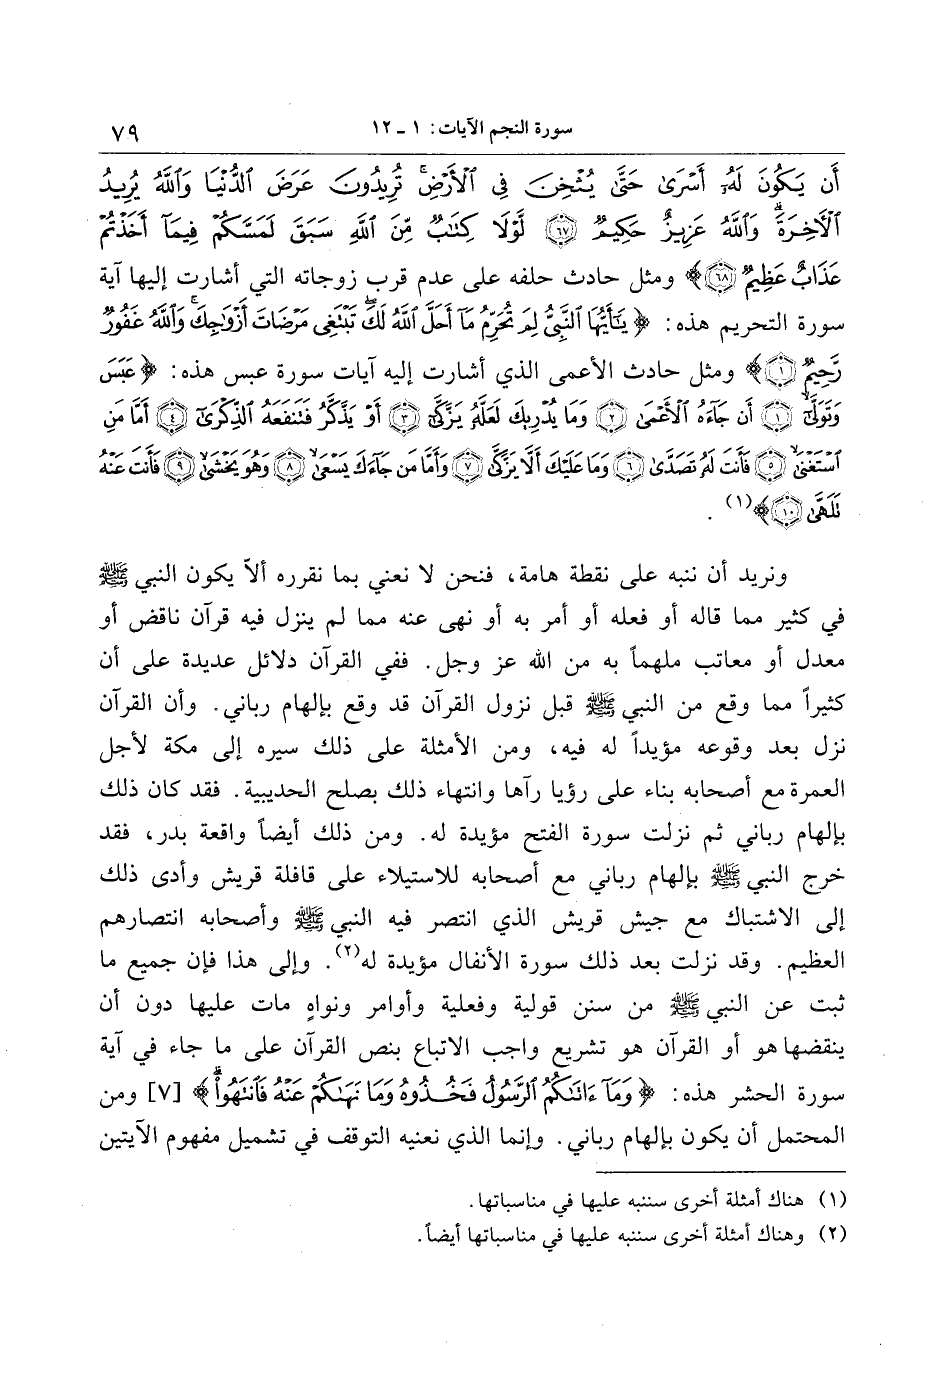 سورة النجم الآيات: ١ ـ ١٢ ٧٩
أَن يَكُونَ لَهُۥٓ أَسْرَىٰ حَتَّىٰ يُثْخِنَ فِى ٱلْأَرْضِ ۚ تُرِيدُونَ عَرَضَ ٱلدُّنْيَا وَٱللَّهُ يُرِيدُ
ٱلْـَٔاخِرَةَ ۗ وَٱللَّهُ عَزِيزٌ حَكِيمٌ ﴿٦٧﴾ لَّوْلَا كِتَٰبٌ مِّنَ ٱللَّهِ سَبَقَ لَمَسَّكُمْ فِيمَآ أَخَذْتُمْ
عَذَابٌ عَظِيمٌ ﴿٦٨﴾﴾ ومثل حادث حلفه على عدم قرب زوجاته التي أشارت إليها آية
سورة التحريم هذه: ﴿يَٰٓأَيُّهَا ٱلنَّبِىُّ لِمَ تُحَرِّمُ مَآ أَحَلَّ ٱللَّهُ لَكَ ۖ تَبْتَغِى مَرْضَاتَ أَزْوَٰجِكَ ۚ وَٱللَّهُ غَفُورٌ
رَّحِيمٌ ﴿١﴾﴾ ومثل حادث الأعمى الذي أشارت إليه آيات سورة عبس هذه: ﴿عَبَسَ
وَتَوَلَّىٰٓ ﴿١﴾ أَن جَآءَهُ ٱلْأَعْمَىٰ ﴿٢﴾ وَمَا يُدْرِيكَ لَعَلَّهُۥ يَزَّكَّىٰٓ ﴿٣﴾ أَوْ يَذَّكَّرُ فَتَنفَعَهُ ٱلذِّكْرَىٰٓ ﴿٤﴾ أَمَّا مَنِ
ٱسْتَغْنَىٰ ﴿٥﴾ فَأَنتَ لَهُۥ تَصَدَّىٰ ﴿٦﴾ وَمَا عَلَيْكَ أَلَّا يَزَّكَّىٰ ﴿٧﴾ وَأَمَّا مَن جَآءَكَ يَسْعَىٰ ﴿٨﴾ وَهُوَ يَخْشَىٰ ﴿٩﴾ فَأَنتَ عَنْهُ
تَلَهَّىٰ ﴿١٠﴾﴾(١).
ونريد أن ننبه على نقطة هامة، فنحن لا نعني بما نقرره ألاّ يكون النبي ﷺ
في كثير مما قاله أو فعله أو أمر به أو نهى عنه مما لم ينزل فيه قرآن ناقض أو
معدل أو معاتب ملهماً به من الله عز وجل. ففي القرآن دلائل عديدة على أن
كثيراً مما وقع من النبي ﷺ قبل نزول القرآن قد وقع بإلهام رباني. وأن القرآن
نزل بعد وقوعه مؤيداً له فيه، ومن الأمثلة على ذلك سيره إلى مكة لأجل
العمرة مع أصحابه بناء على رؤيا رآها وانتهاء ذلك بصلح الحديبية. فقد كان ذلك
بإلهام رباني ثم نزلت سورة الفتح مؤيدة له. ومن ذلك أيضاً واقعة بدر، فقد
خرج النبي ﷺ بإلهام رباني مع أصحابه للاستيلاء على قافلة قريش وأدى ذلك
إلى الاشتباك مع جيش قريش الذي انتصر فيه النبي ﷺ وأصحابه انتصارهم
العظيم. وقد نزلت بعد ذلك سورة الأنفال مؤيدة له(٢). وإلى هذا فإن جميع ما
ثبت عن النبي ﷺ من سنن قولية وفعلية وأوامر ونواهٍ مات عليها دون أن
ينقضها هو أو القرآن هو تشريع واجب الاتباع بنص القرآن على ما جاء في آية
سورة الحشر هذه: ﴿وَمَآ ءَاتَىٰكُمُ ٱلرَّسُولُ فَخُذُوهُ وَمَا نَهَىٰكُمْ عَنْهُ فَٱنتَهُوا۟ ۚ﴾ [٧] ومن
المحتمل أن يكون بإلهام رباني. وإنما الذي نعنيه التوقف في تشميل مفهوم الآيتين
(١) هناك أمثلة أخرى سننبه عليها في مناسباتها.
(٢) وهناك أمثلة أخرى سننبه عليها في مناسباتها أيضاً.